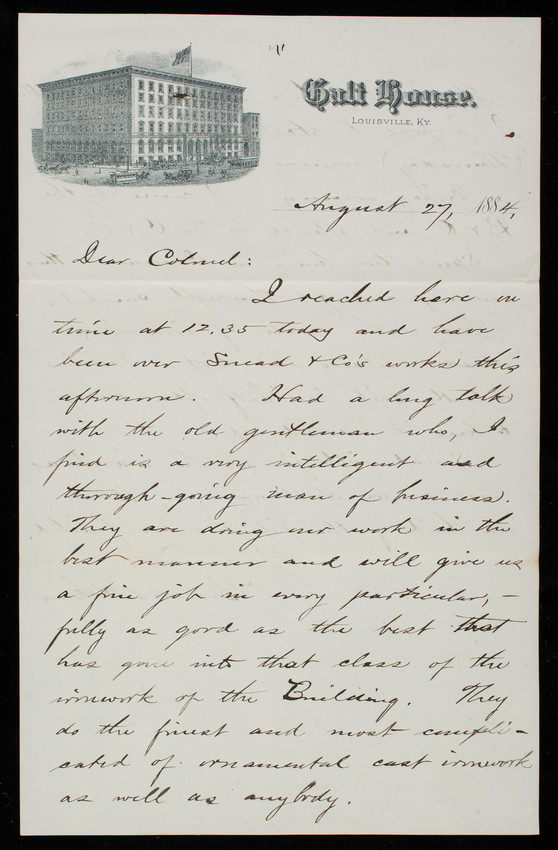 Galt House.
Louisville, Ky.
August 27, 1884,
Dear Colonel:
I reached here on
time at 12.35 today and have
been over Snead & Co's works this
afternoon. Had a long talk
with the old gentleman who, I
find is a very intelligent and
thorough-going man of business.
They are doing our work in the
best manner and will give us
a fine job in every particular, –
fully as good as the best that
has gone into that class of the
ironwork of the Building. They
do the finest and most compli-
cated of ornamental cast ironwork
as well as anybody.